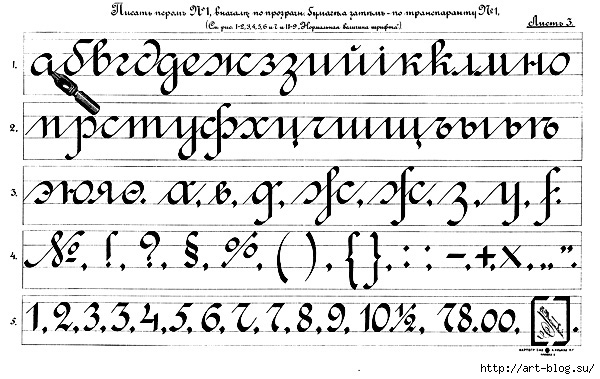 Писать перомъ №1, вначалѣ по прозрач. бумагѣ а затѣмъ - по транспаранту №1.
(См. рис. 1-2, 3, 4, 5, 6 и 7 и 18-9, „Нормальная величина шрифта")
Листъ 3.
1. абвгдджззийіікклмно
2. прстуфхцчшщъыьѣ
3. эюяѳ. а, в, д, ж, ж, з, у, f.
4. №, !, ?, §, %, ( ) , { } , : ; -, +, x, „ ".
5. 1, 2, 3, 3, 4, 5, 6, 7, 7, 8, 9, 10½, 78.00,
http://art-blog.su/